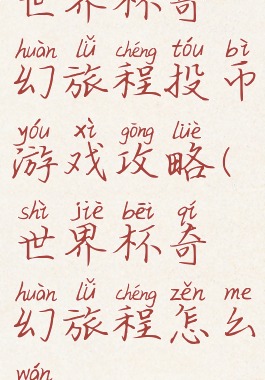 世界杯奇
huàn lǚ chéng tóu bì
幻旅程投币
yóu xì gōng lüè
游戏攻略(
shì jiè bēi qí
世界杯奇
huàn lǚ chéng zěn me
幻旅程怎么
wán